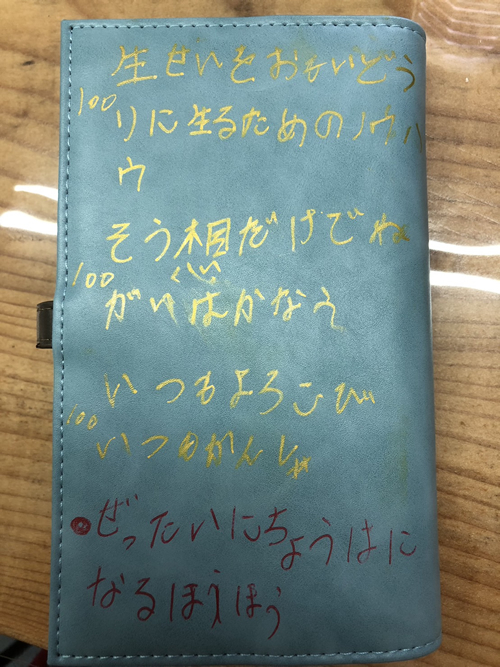 生せいをおもいどう
100
りに生るためのノウハ
ウ
そう相だけでね
100
がいはかなえ
いつもよろこび
100
いつのかんしゃ
ぜったいにちょうはに
なるほうほう